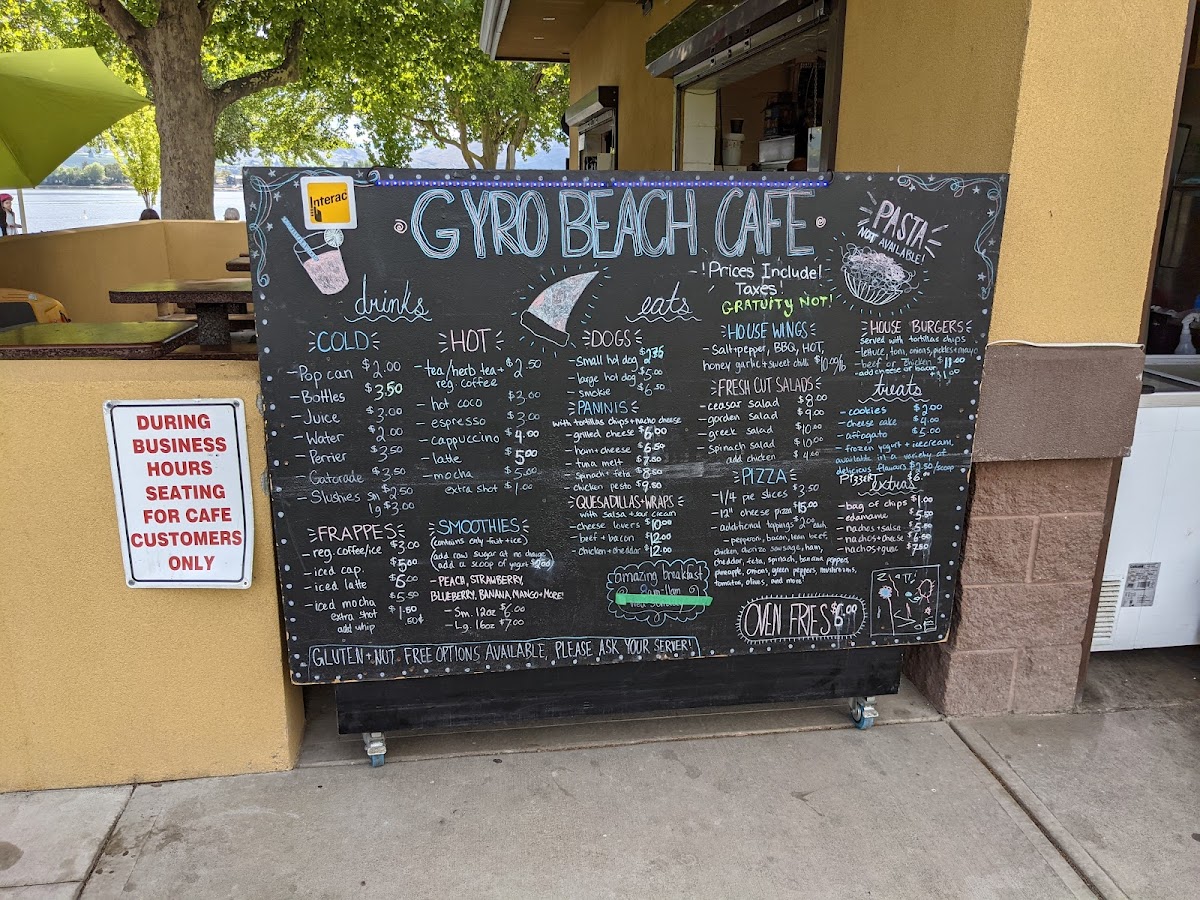 Interac
GYRO BEACH CAFE
PASTA
NOT AVAILABLE!
! Prices Include!
Taxes!
GRATUITY NOT!
drinks
COLD
- Pop can $2.00
- Bottles $3.50
- Juice $3.00
- Water $2.00
- Perrier $3.50
- Gatorade $3.50
- Slushies sm $2.50
lg $3.00
HOT
- tea/herb tea + $2.50
reg. coffee
- hot coco $3.00
- espresso $3.00
- cappuccino $4.00
- latte $5.00
- mocha $5.00
extra shot $1.00
FRAPPES
- reg. coffee/ice $3.00
- iced cap. $5.00
- iced latte $6.00
- iced mocha $5.50
extra shot $1.50
add whip .50¢
SMOOTHIES
(contains only fruit + ice)
(add raw sugar at no charge
add a scoop of yogurt $2.00)
- PEACH, STRAWBERRY,
BLUEBERRY, BANANA, MANGO + MORE!
- Sm. 12oz $6.00
- Lg. 16oz $7.00
eats
DOGS
- small hot dog $2.75
- large hot dog $5.00
- smokie $6.50
PANINIS
with tortillas chips + nacho cheese
- grilled cheese $6.00
- ham + cheese $6.50
- tuna melt $7.50
- spinach + feta $8.50
- chicken pesto $9.50
QUESADILLAS + WRAPS
with salsa + sour cream
- cheese lovers $10.00
- beef + bacon $12.00
- chicken + cheddar $12.00
amazing breakfast
8am-11am
HOUSE WINGS
- salt + pepper, BBQ, HOT,
honey garlic + sweet chili $10.00/lb
FRESH CUT SALADS
- ceasar salad $8.00
- gorden salad $9.00
- greek salad $10.00
- spinach salad $10.00
add chicken $4.00
PIZZA
- 1/4 pie slices $3.50
- 12" cheese pizza $15.00
- additional toppings $2.00 each
- pepperoni, bacon, lean beef,
chicken, chorizo sausage, ham,
cheddar, feta, spinach, banana peppers,
pineapple, onions, green peppers, mushrooms,
tomatoes, olives, and more!
OVEN FRIES $6.00
HOUSE BURGERS
served with tortillas chips
- lettuce, tom, onions, pickles + mayo
- beef or chicken $11.00
- add cheese or bacon +$1.00
treats
- cookies $2.00
- cheese cake $4.00
- affogato $6.00
- frozen yogurt + icecream,
available in a variety of
delicious flavours $2.50/scoop
extras
- bag of chips $1.00
- edamame $5.50
- nachos + salsa $5.50
- nachos + cheese $6.50
- nachos + guac $7.50
GLUTEN + NUT FREE OPTIONS AVAILABLE, PLEASE ASK YOUR SERVER!
DURING
BUSINESS
HOURS
SEATING
FOR CAFE
CUSTOMERS
ONLY